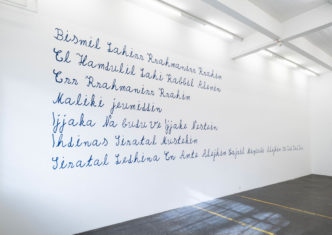 Bismil Lahirr Rrahmanirr Rrahim
El Hamdulil Lahi Rabbil Alemin
Err Rrahmanirr Rrahim
Maliki jeumiddin
Ijjaka Na budu ve Ijjake Nestein
Ihdinas Siratal Mustekim
Siratal Leshina En Ante Alejhim Gajril